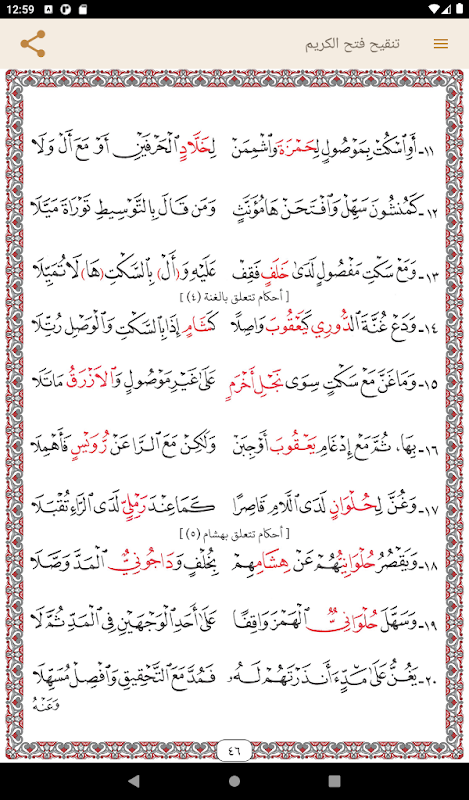 12:59
تنقيح فتح الكريم
١١- أَوِ اسْكُتْ بِمَوْصُولٍ لِحَمْزَةَ وَاشْمِمَنْ لِخَلَّادٍ الْحَرْفَيْنِ أَوْ مَعَ أَلْ وَلَا
١٢- كَمُنْشُونَ سَهِّلْ وَافْتَحَنْ هَا مُؤَنَّثٍ وَمَنْ قَالَ بِالتَّوْسِيطِ تَوْرَاةَ مَيَّلَا
١٣- وَمَعْ سَكْتِ مَفْصُولٍ لَدَى خَلَفٍ فَقِفْ عَلَيْهِ وَ(أَلْ) بِالسَّكْتِ (هَا) لَا تُمَيِّلَا
[ أحكام تتعلق بالغنة (٤) ]
١٤- وَدَعْ غُنَّةَ الدُّورِي كَيَعْقُوبَ وَاصِلًا كَشَامٍ إِذَا بِالسَّكْتِ وَالْوَصْلِ رُتِّلَا
١٥- وَمَا غَنَّ مَعْ سَكْتٍ سِوَى نَجْلِ أَخْرَمٍ عَلَى غَيْرِ مَوْصُولٍ وَالْأَزْرَقُ مَا تَلَا
١٦- بِهَا، ثُمَّ مَعْ إِدْغَامِ يَعْقُوبَ أَوْجِبَنْ وَلَكِنْ مَعَ الرَّا عَنْ رُوَيْسٍ فَأَهْمِلَا
١٧- وَغُنَّ لِحُلْوَانٍ لَدَى اللَّامِ قَاصِرًا كَمَا عِنْدَ رَمْلِيٍّ لَدَى الرَّاءِ تُقْبَلَا
[ أحكام تتعلق بهشام (٥) ]
١٨- وَيَقْصُرُ حُلْوَانِيُّهُمْ عَنْ هِشَامِهِمْ بِخُلْفٍ وَدَاجُونِيُّ الْمَدَّ وَصَّلَا
١٩- وَسَهَّلَ حُلْوَانِيٌّ الْهَمْزَ وَاقِفًا عَلَى أَحَدِ الْوَجْهَيْنِ فِي الْمَدِّ ثُمَّ لَا
٢٠- يَغُنُّ عَلَى مَدٍّ ءَأَنذَرْتَهُمْ لَهُ فَمُدَّ مَعَ التَّحْقِيقِ وَافْصِلْ مُسَهِّلَا
وَعَنْهُ
٤٦